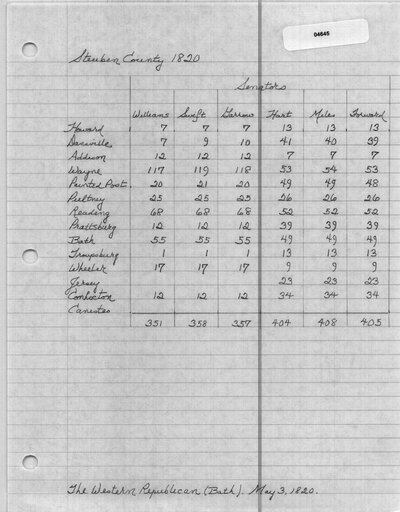 04645
Steuben County 1820
Senators
Williams Swift Garrow Hart Miles Forward
Howard 7 7 7 13 13 13
Dansville 7 9 10 41 40 39
Addison 12 12 12 7 7 7
Wayne 117 119 118 53 54 53
Painted Post 20 21 20 49 49 48
Pultney 25 25 25 26 26 26
Reading 68 68 68 52 52 52
Prattsburg 12 12 12 39 39 39
Bath 55 55 55 49 49 49
Troupsburg 1 1 1 13 13 13
Wheeler 17 17 17 9 9 9
Jersey 23 23 23
Conhocton 12 12 12 34 34 34
Canesteo
351 358 357 404 408 405
The Western Republican (Bath). May 3, 1820.